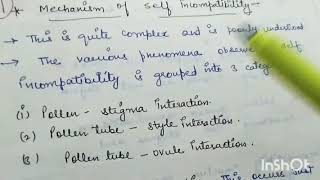 * Mechanism of Self Incompatibility:-
→ This is quite complex and is poorly understood
→ The various phenomena observe self
Incompatibility is grouped into 3 categ
(1) Pollen - Stigma Interaction.
(2) Pollen tube - style Interaction.
(3) Pollen tube - ovule Interaction.
This occurs just
InShOt